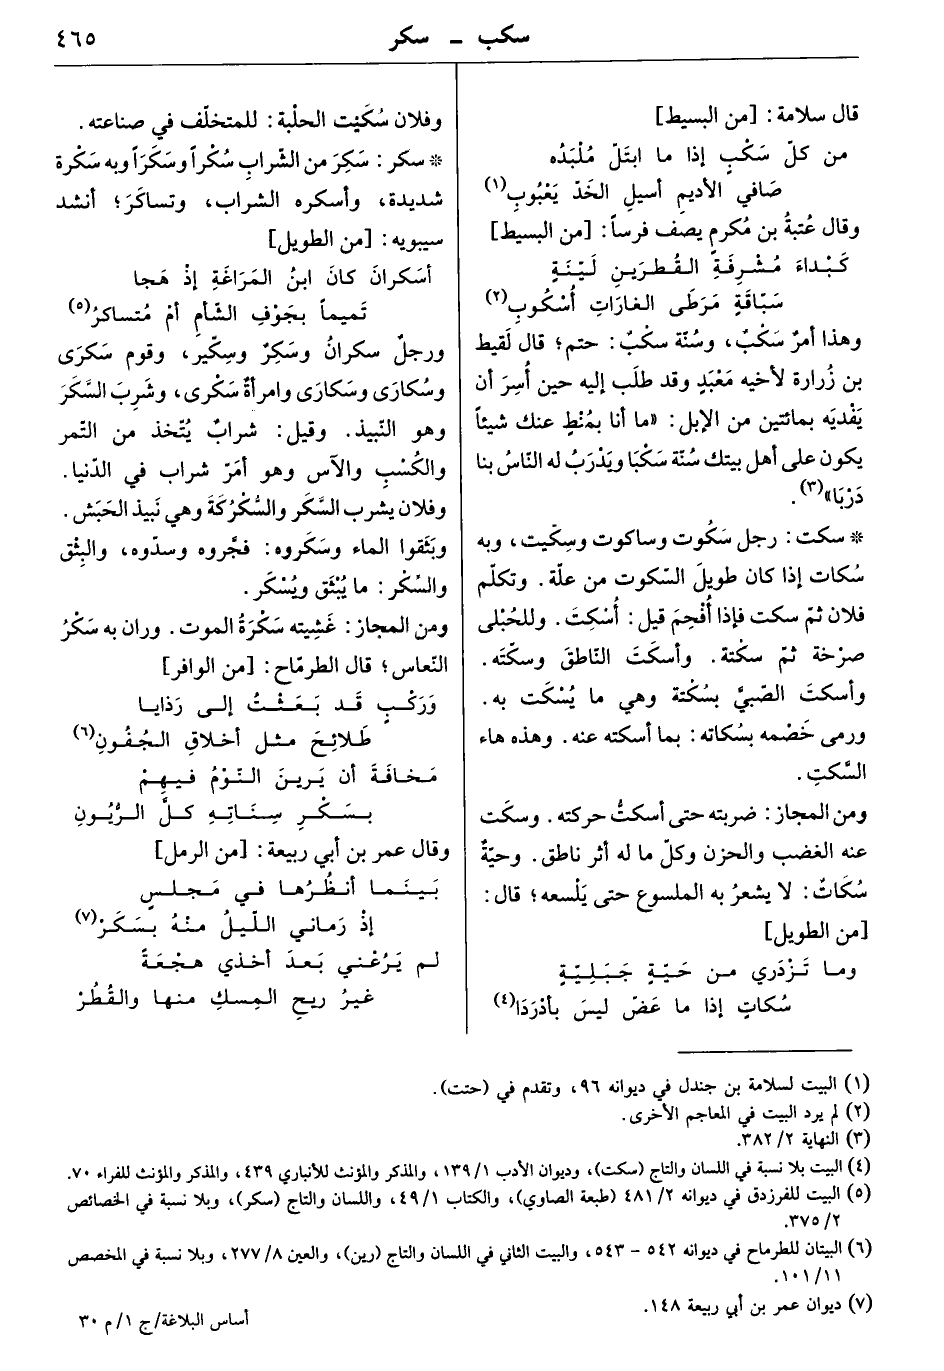 سكب ـ سكر
٤٦٥
قال سلامة: [من البسيط]
من كلّ سَكْبٍ إذا ما ابتَلّ مُلْبَدُه
صَافي الأديم أسيلِ الخَدّ يَعْبُوبِ(١)
وقال عُتبةُ بن مُكرمٍ يصف فرساً: [من البسيط]
كَبْداءَ مُشرِفَةِ القُطرَينِ لَيّنَةٍ
سَبّاقَةٍ مَرَطَى الغاراتِ أُسْكُوبِ(٢)
وهذا أمرٌ سَكْبٌ، وسُنّة سكْبٌ: حتم؛ قال لَقيط
بن زُرارة لأخيه مَعْبَدٍ وقد طلَب إليه حين أُسِرَ أن
يَفْديَه بمائتين من الإبل: «ما أنا بمُنْطٍ عنك شيئاً
يكون على أهل بيتك سُنّة سَكْبَا ويَدْرَبُ له النّاسُ بنا
دَرْبَا»(٣).
* سكت: رجل سَكُوت وساكوت وسِكّيت، وبه
سُكات إذا كان طويلَ السّكوت من علّة. وتكلّم
فلان ثمّ سكت فإذا أُفْحِمَ قيل: أُسْكِتَ. وللحُبْلى
صرْخة ثمّ سكْتة. وأسكَتَ النّاطقَ وسكّته.
وأسكتَ الصّبيَّ بسُكْتة وهي ما يُسْكَت به.
ورمى خَصْمه بسُكاته: بما أسكته عنه. وهذه هاء
السَّكتِ.
ومن المجاز: ضربته حتى أسكتُّ حركته. وسكَت
عنه الغضب والحزن وكلّ ما له أثر ناطق. وحيّةٌ
سُكاتٌ: لا يشعرُ به الملسوع حتى يَلْسعه؛ قال:
[من الطويل]
وما تَزْدَري من حَيّةٍ جَبَلِيّةٍ
سُكاتٍ إذا ما عَضّ ليسَ بأدْرَدَا(٤)
وفلان سُكَيْت الحلْبة: للمتخلّف في صناعته.
* سكر: سَكِرَ من الشّراب سُكْراً وسَكَرَاً وبه سَكْرة
شديدة، وأسكره الشراب، وتساكَرَ؛ أنشد
سيبويه: [من الطويل]
أسَكرانَ كانَ ابنُ المَرَاغَةِ إذْ هَجا
تَميماً بجَوْفِ الشّأمِ أمْ مُتَساكرُ(٥)
ورجلٌ سكرانُ وسَكِرٌ وسِكّير، وقوم سَكرَى
وسُكارَى وسَكارَى وامرأةٌ سَكْرى، وشَرِبَ السَّكَرَ
وهو النّبيذ. وقيل: شرابٌ يُتّخذ من التّمر
والكُسْبِ والآس وهو أمَرّ شراب في الدّنيا.
وفلان يشرب السَّكَر والسُّكْرُكَةَ وهي نَبيذ الحَبَش.
وبَثَقوا الماء وسَكَروه: فجّروه وسدّوه، والبِثْق
والسِّكْر: ما يُبْثَق ويُسْكَر.
ومن المجاز: غَشِيته سَكْرَةُ الموت. وران به سَكْرُ
النّعاس؛ قال الطرمّاح: [من الوافر]
وَرَكْبٍ قَد بَعَثْتُ إلى رَذايا
طَلائِحَ مثل أخلاقِ الجُفُونِ(٦)
مَخافَةَ أن يَرينَ النّوْمُ فيهِمْ
بسَكْرِ سِنَاتِهِ كلَّ الرُّيُونِ
وقال عمر بن أبي ربيعة: [من الرمل]
بَينَما أنظُرُها في مَجلسٍ
إذْ رَماني اللّيلُ منهُ بسَكَرْ(٧)
لم يَرُعْني بَعدَ أخذي هجْعَةً
غيرُ ريحِ المِسكِ منها والقُطُرْ
(١) البيت لسلامة بن جندل في ديوانه ٩٦، وتقدم في (حتت).
(٢) لم يرد البيت في المعاجم الأخرى.
(٣) النهاية ٢/ ٣٨٢.
(٤) البيت بلا نسبة في اللسان والتاج (سكت)، وديوان الأدب ١/ ١٣٩، والمذكر والمؤنث للأنباري ٤٣٩، والمذكر والمؤنث للفراء ٧٠.
(٥) البيت للفرزدق في ديوانه ٢/ ٤٨١ (طبعة الصاوي)، والكتاب ١/ ٤٩، واللسان والتاج (سكر)، وبلا نسبة في الخصائص
٢/ ٣٧٥.
(٦) البيتان للطرماح في ديوانه ٥٤٢ - ٥٤٣، والبيت الثاني في اللسان والتاج (رين)، والعين ٨/ ٢٧٧، وبلا نسبة في المخصص
١١/ ١٠١.
(٧) ديوان عمر بن أبي ربيعة ١٤٨.
أساس البلاغة/ج ١/ م ٣٠